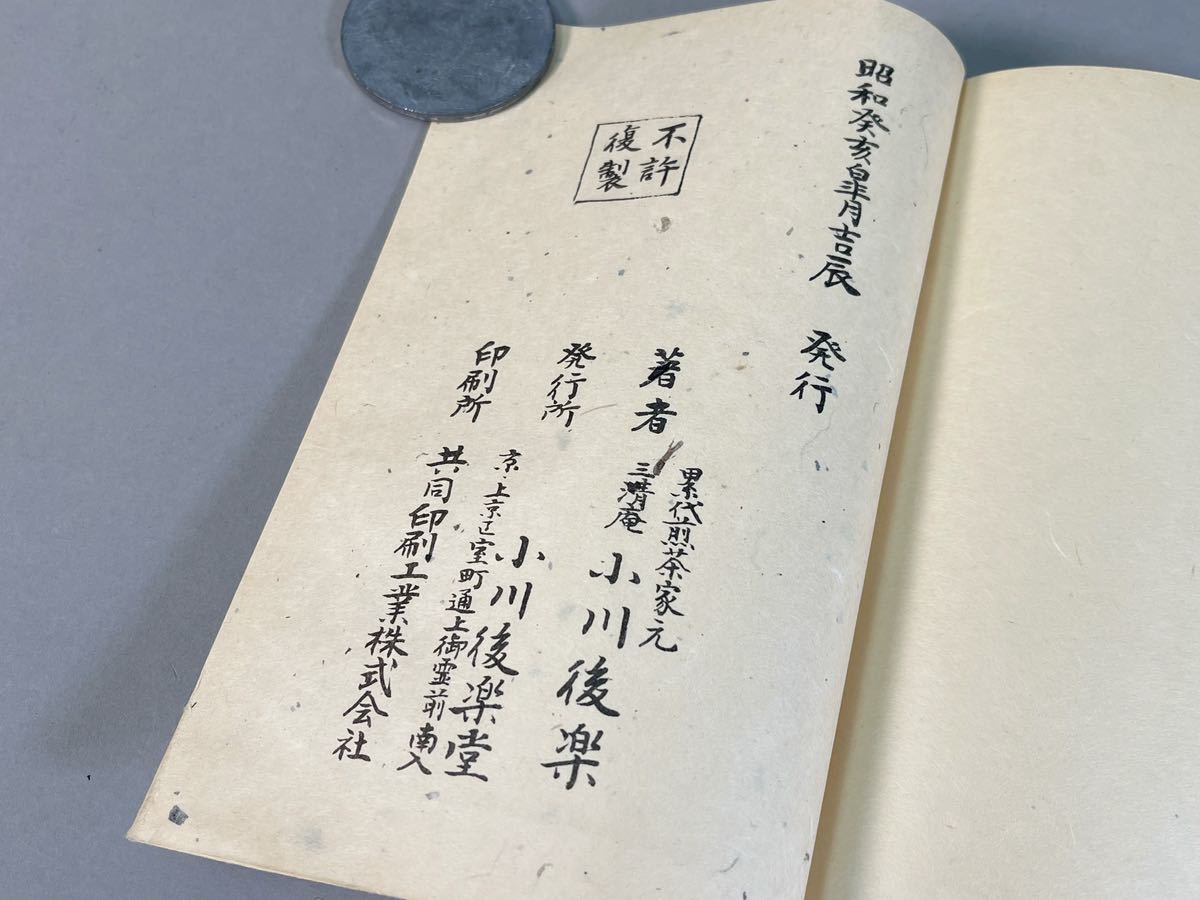 昭和癸亥皐月吉辰　発行
不許
復製
著者
累代煎茶家元
三清庵　小川後楽
発行所　小川後楽堂
京・上京区室町通上御霊前南入
印刷所　共同印刷工業株式会社